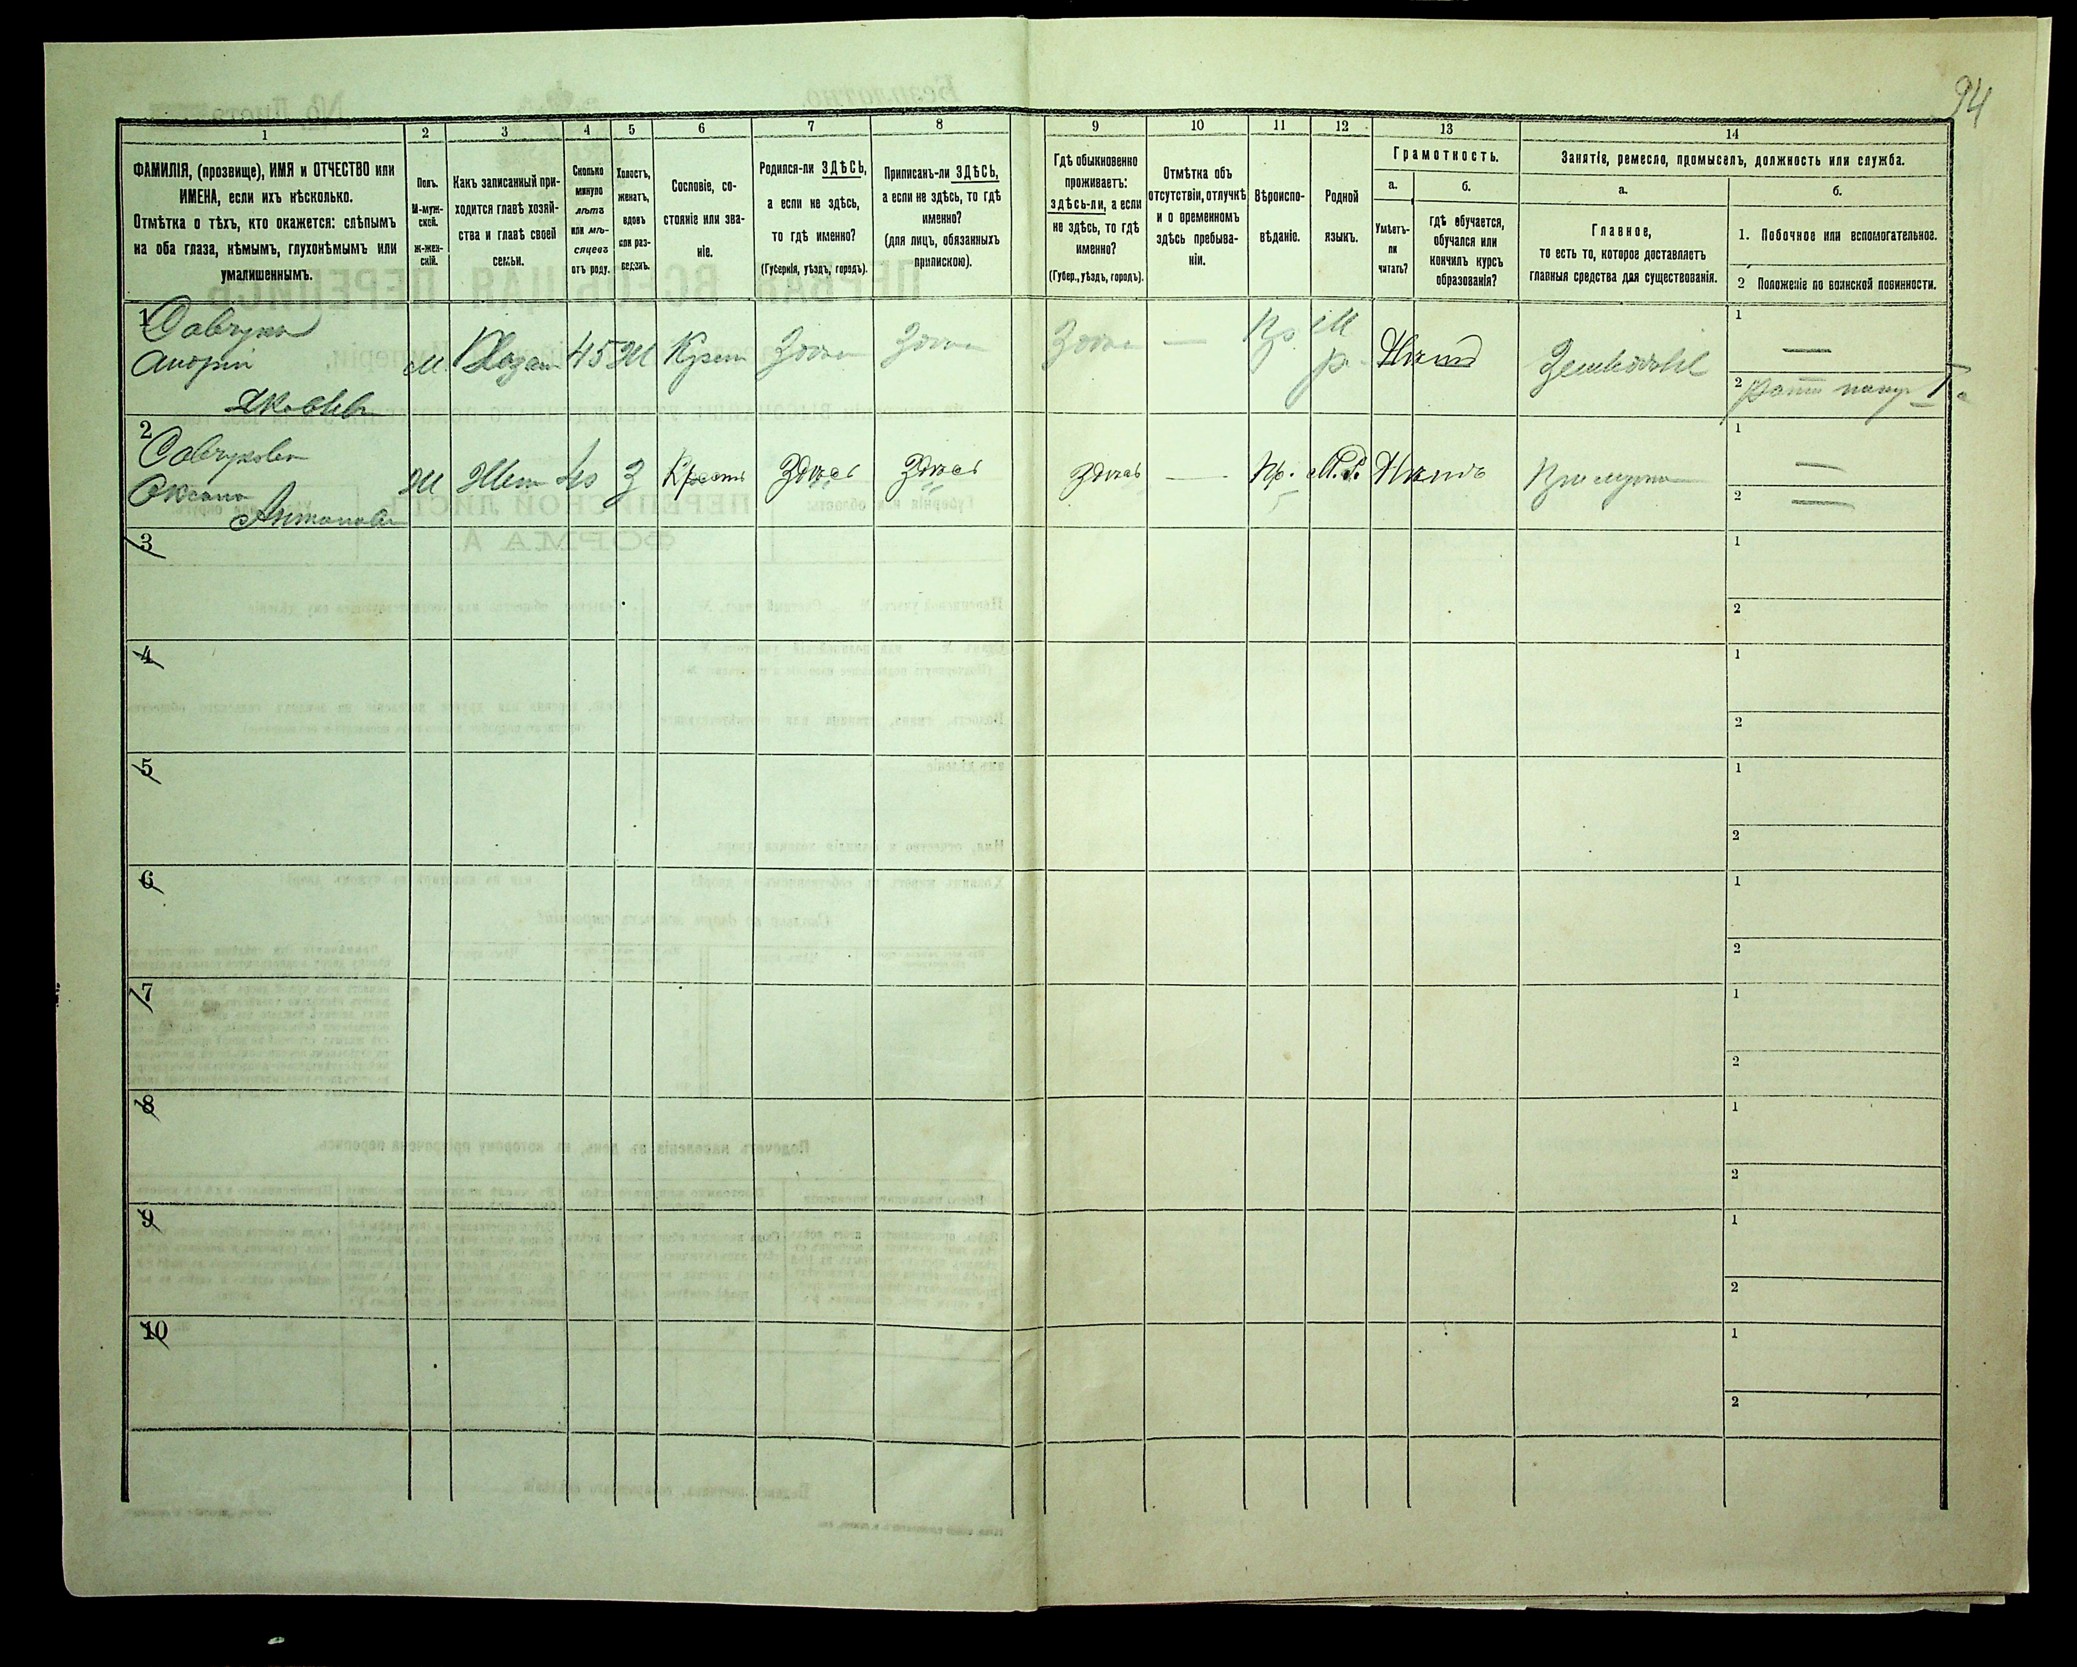 94
1 2 3 4 5 6 7 8 9 10 11 12 13 14
ФАМИЛІЯ, (прозвище), ИМЯ и ОТЧЕСТВО или
ИМЕНА, если ихъ нѣсколько.
Отмѣтка о тѣхъ, кто окажется: слѣпымъ
на оба глаза, нѣмымъ, глухонѣмымъ или
умалишеннымъ.
Полъ.
М-муж-
ской.
Ж-жен-
скій.
Какъ записанный при-
ходится главѣ хозяй-
ства и главѣ своей
семьи.
Сколько
минуло
лѣтъ
или мѣ-
сяцевъ
отъ роду.
Холостъ,
женатъ,
вдовъ
или раз-
веденъ.
Сословіе, со-
стояніе или зва-
ніе.
Родился-ли ЗДѢСЬ,
а если не здѣсь,
то гдѣ именно?
(Губернія, уѣздъ, городъ).
Приписанъ-ли ЗДѢСЬ,
а если не здѣсь, то гдѣ
именно?
(для лицъ, обязанныхъ
припискою).
Гдѣ обыкновенно
проживаетъ:
здѣсь-ли, а если
не здѣсь, то гдѣ
именно?
(Губер., уѣздъ, городъ).
Отмѣтка объ
отсутствіи, отлучкѣ
и о временномъ
здѣсь пребыва-
ніи.
Вѣроиспо-
вѣданіе.
Родной
языкъ.
Грамотность.
а.
Умѣетъ-
ли
читать?
б.
гдѣ обучается,
обучался или
кончилъ курсъ
образованія?
Занятіе, ремесло, промыселъ, должность или служба.
а.
Главное,
то есть то, которое доставляетъ
главныя средства для существованія.
б.
1. Побочное или вспомогательное.
2 Положеніе по воинской повинности.
1 Савчукъ
Андрей
Яковлев
М Хозяин 45 Ж Крест Здѣсь Здѣсь Здѣсь — Пр М
р. Нѣтъ
1 —
2
2
Савчукова
Оксана
Антонова
Ж Жен 40 З Крестъ Здѣсь Здѣсь Здѣсь — Пр. М.Р. Нѣтъ При мужѣ
1 —
2 —
3
1
2
4
1
2
5
1
2
6
1
2
7
1
2
8
1
2
9
1
2
10
1
2